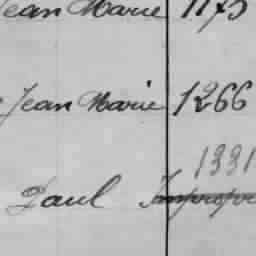 Jean Marie 1175
Jean Marie 1266
1331
Paul Impropre